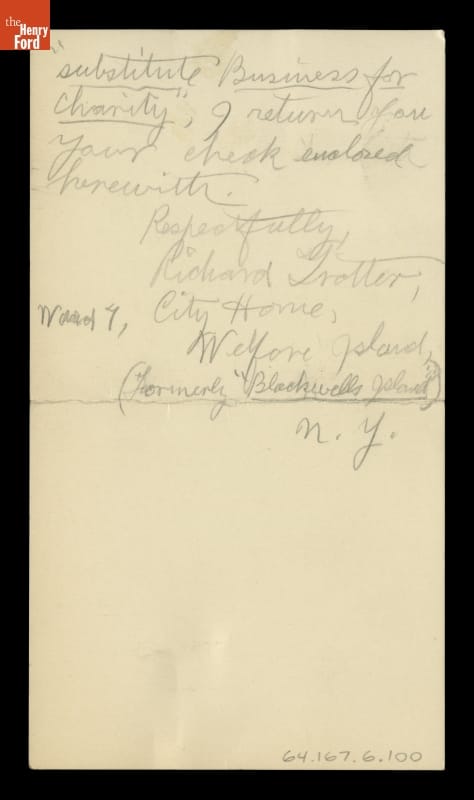 the
Henry
Ford
substitute Business for
Charity", I return you
your check enclosed
herewith.
Respectfully,
Richard Trotter,
Ward 7, City Home,
Welfare Island,
(formerly "Blackwells Island")
N. Y.
64.167.6.100